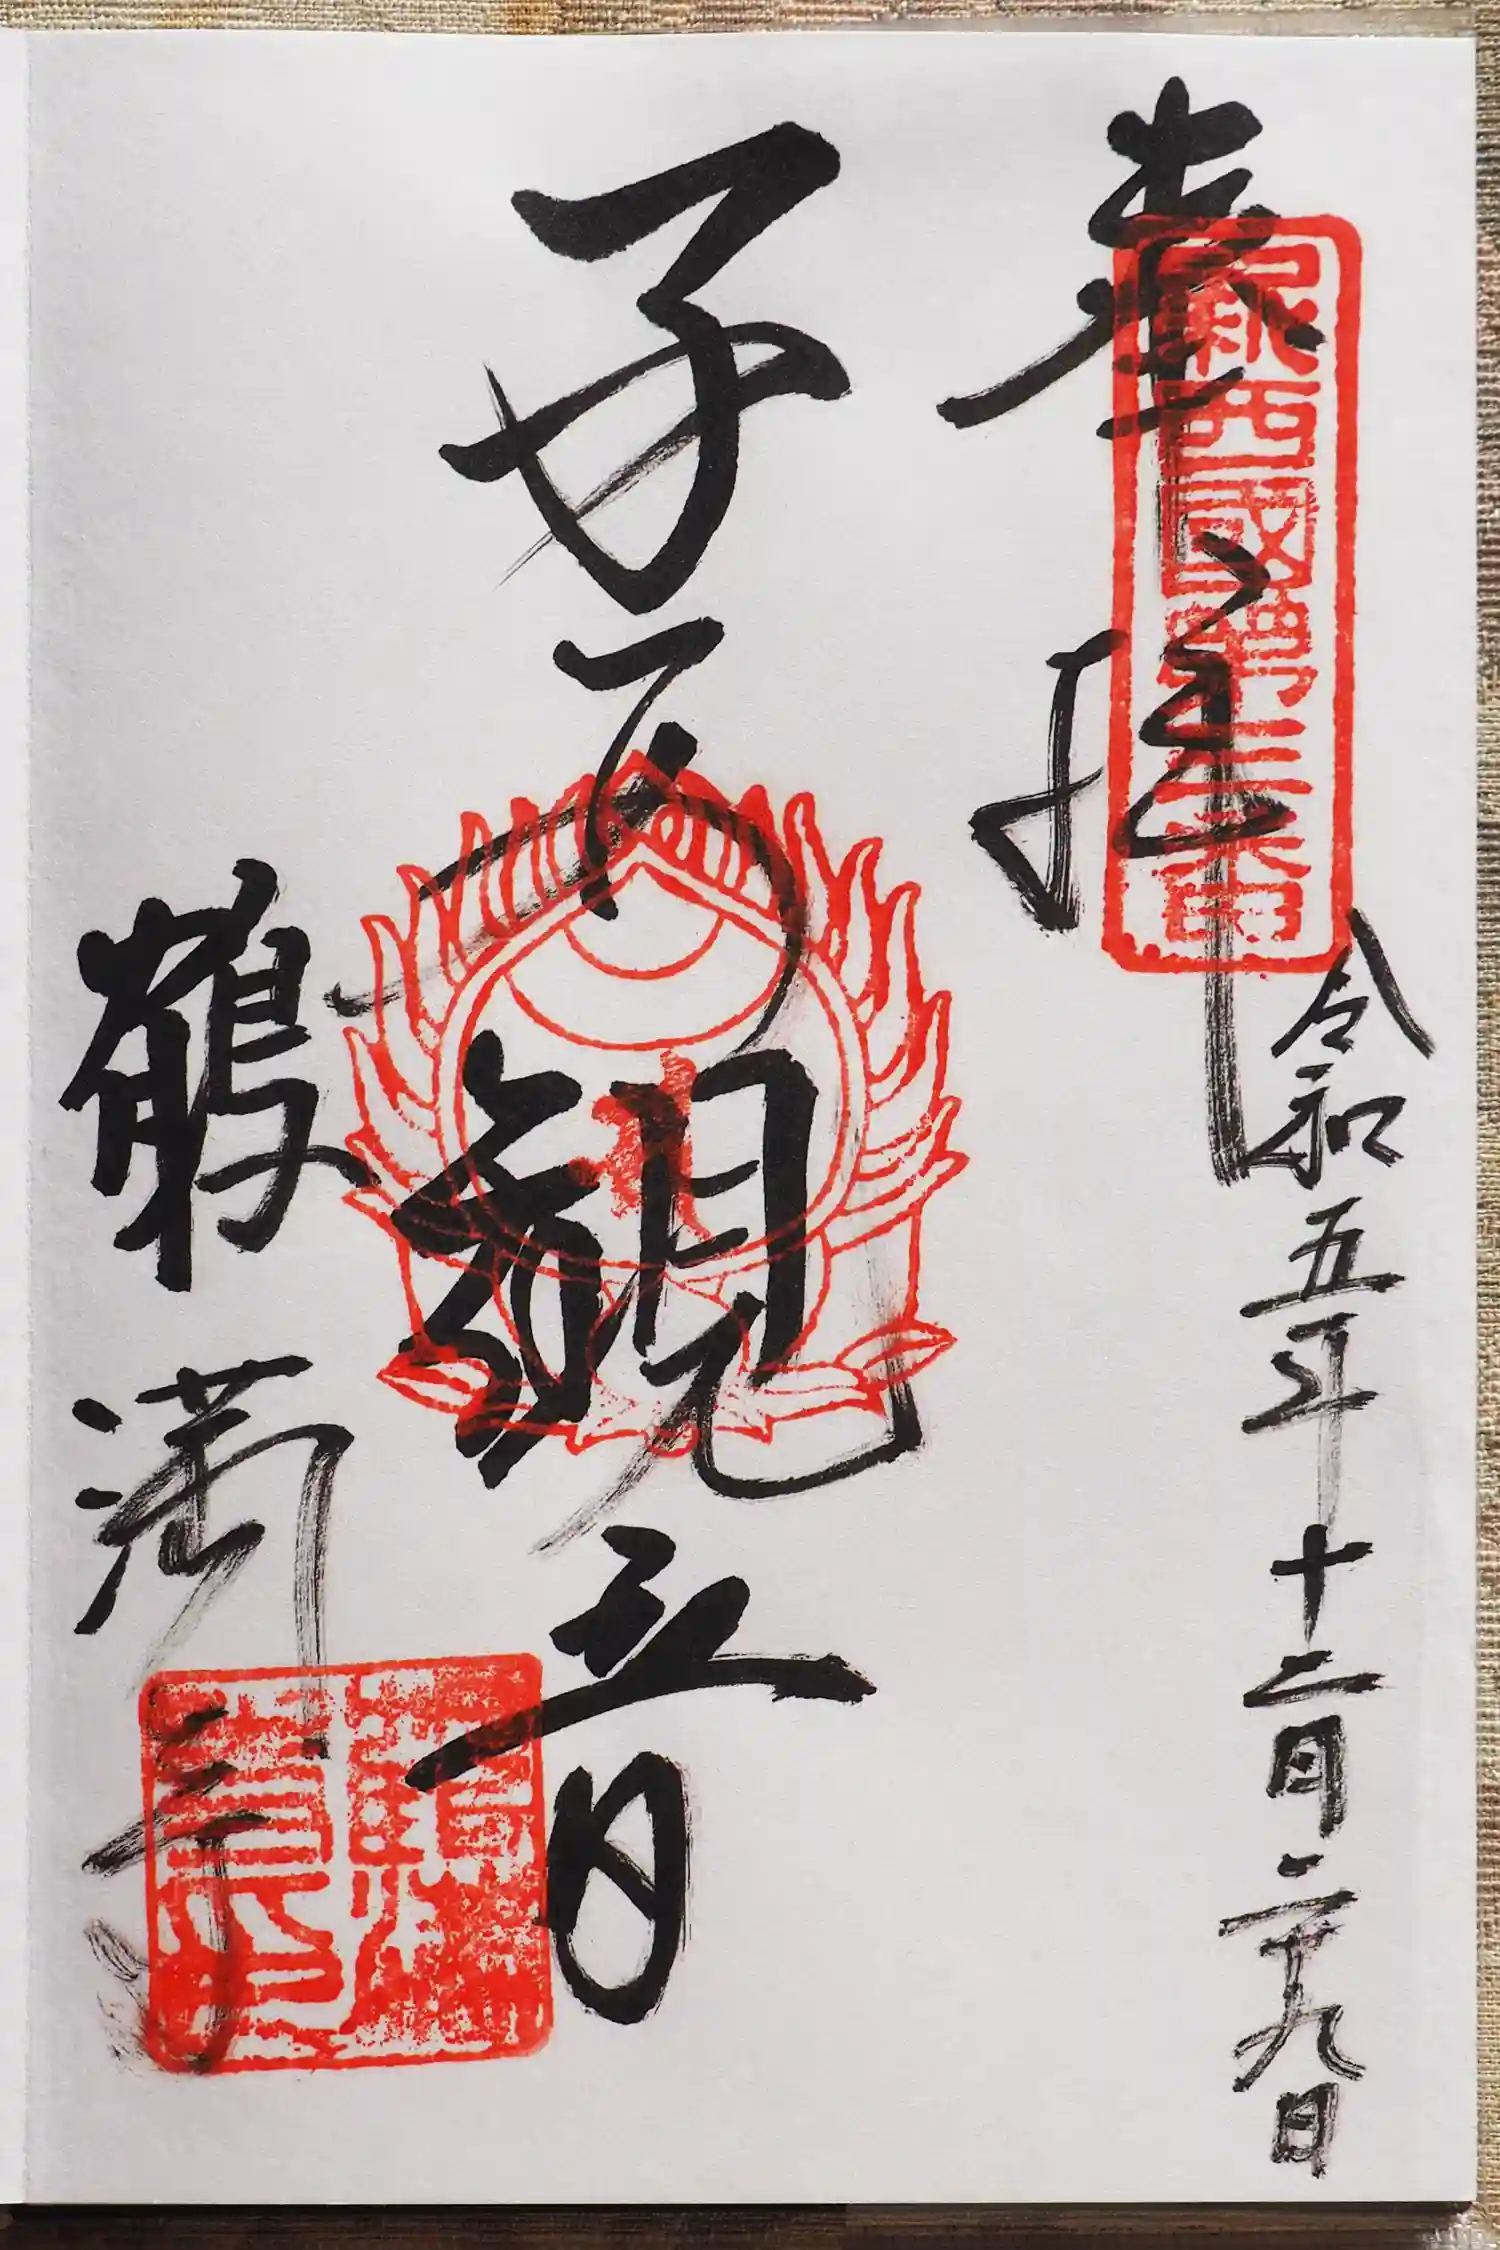 奉拝
新西國第三番
令和五年十二月二十九日
子安観音
鶴満寺